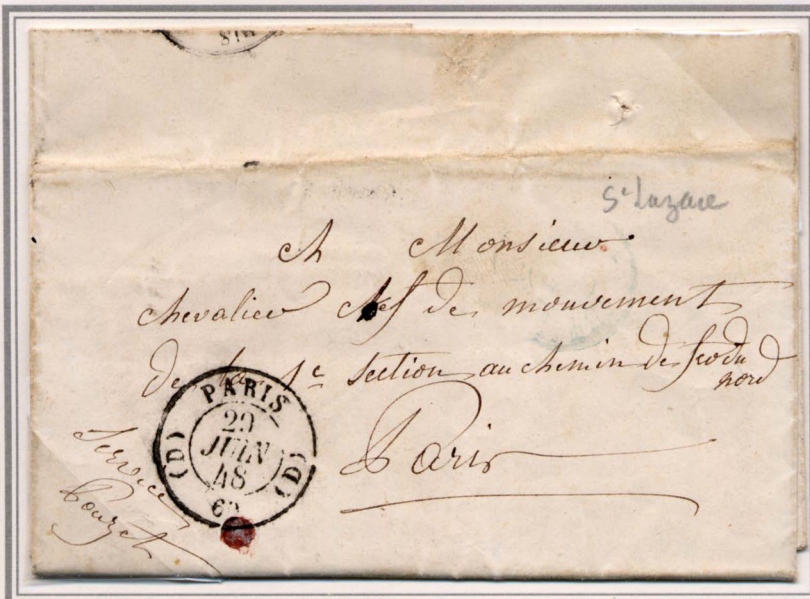 St Lazare
A Monsieur
chevalier chef de mouvement
de la 1e section au chemin de fer du
nord
Paris
PARIS
29
JUIN
48
(D) (D)
60
Service
Pouzet